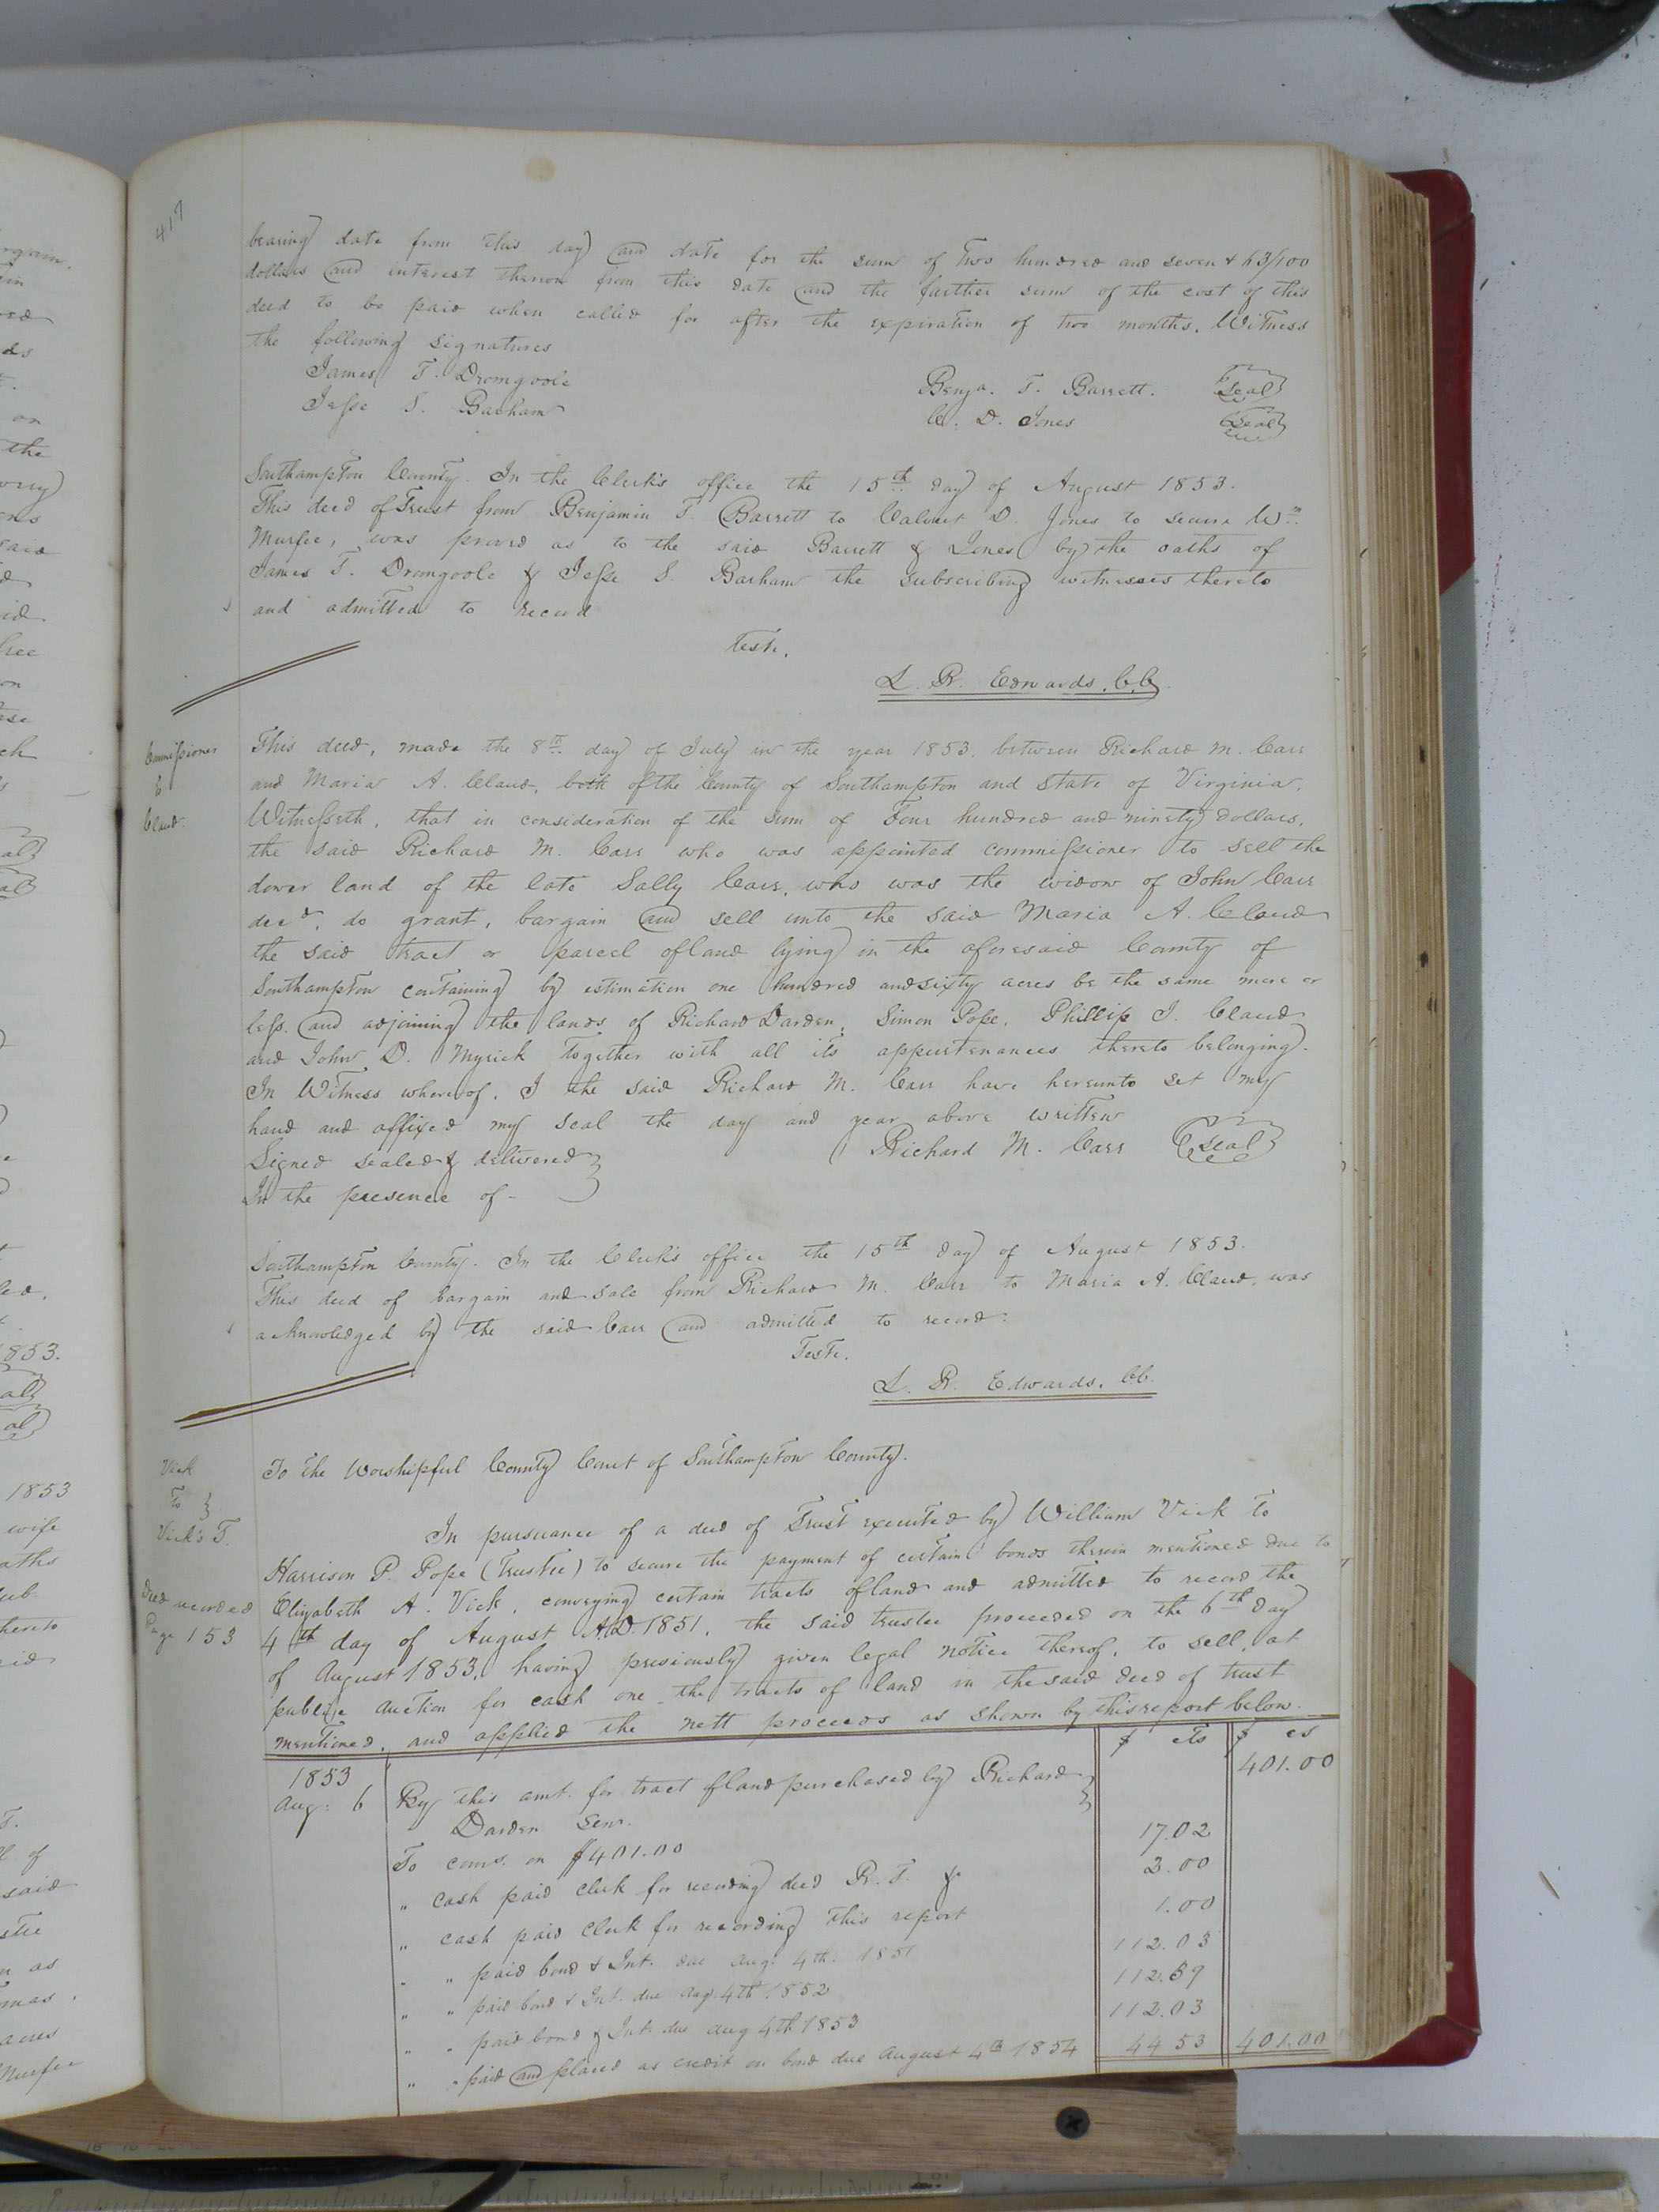 417
bearing date from this day and date for the sum of Two hundred and seven & 63/100
dollars and interest thereon from this date and the farther sum of the cost of this
deed to be paid when called for after the expiration of two months. Witness
the following signatures
James T. Dromgoole
Benja. T. Barrett. Seal
Jesse S. Barham
C. D. Jones Seal
Southampton County. In the Clerk's office the 15th day of August 1853.
This deed of Trust from Benjamin T. Barrett to Calvert D. Jones to secure Wm
Murfee, was proved as to the said Barrett & Jones by the oaths of
James T. Dromgoole & Jesse S. Barham the subscribing witnesses thereto
and admitted to record
teste.
L. R. Edwards, C.C.
Commissioner
to
Claud.
This deed, made the 8th day of July in the year 1853. between Richard M. Carr
and Maria A. Claud, both of the County of Southampton and State of Virginia.
Witnesseth, that in consideration of the sum of Four hundred and ninety dollars,
the said Richard M. Carr who was appointed commissioner to sell the
dower land of the late Sally Carr, who was the widow of John Carr
decd, do grant, bargain and sell unto the said Maria A. Claud
the said tract or parcel of land lying in the aforesaid County of
Southampton containing by estimation one hundred and sixty acres be the same more or
less. and adjoining the lands of Richard Darden, Simon Pope, Phillip J. Claud
and John D. Myrick together with all its appurtenances thereto belonging.
In Witness whereof, I the said Richard M. Carr have hereunto set my
hand and affixed my seal the day and year above written
Signed sealed & delivered
Richard M. Carr Seal
In the presence of -
Southampton County. In the Clerk's office the 15th day of August 1853.
This deed of bargain and sale from Richard M. Carr to Maria A. Claud, was
acknowledged by the said Carr and admitted to record.
Teste.
L. R. Edwards. CC.
Vick
To
Vick's T.
Deed recorded
Page 153
To the Worshipful County Court of Southampton County.
In pursuance of a deed of Trust executed by William Vick to
Harrison P. Pope (Trustee) to secure the payment of certain bonds therein mentioned due to
Elizabeth A. Vick, conveying certain tracts of land and admitted to record the
4th day of August A.D. 1851, the said trustee proceeded on the 6th day
of August 1853, having previously given legal notice thereof, to sell, at
public auction for cash one the tracts of land in the said deed of trust
mentioned, and applied the nett proceeds as shown by this report below.
$ cts $ cs
1853
Aug: 6 By this amt. for tract of land purchased by Richard 401.00
Darden Senr.
To coms. on $401.00 17.02
" cash paid clerk for recording deed R. T. & 2.00
" cash paid clerk for recording this report 1.00
" " paid bond & Int. due Aug: 4th. 1851 112.03
" " paid bond & Int. due Aug. 4th 1852 112.39
" " paid bond & Int. due Aug 4th 1853 112.03
" " paid and placed as credit on bond due August 4th 1854 44 53 401.00